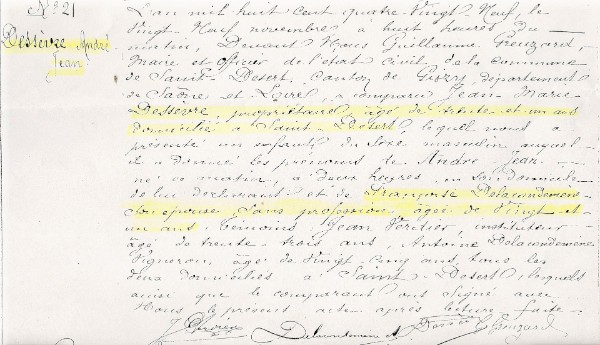 N° 21
Dessèvre André-
Jean
L'an mil huit cent quatre-Vingt-Neuf, le
Vingt-Neuf novembre à huit heures du
matin, Devant Nous Guillaume Greuzard,
Maire et Officier de l'état civil de la commune
de Saint-Désert, Canton de Givry, département
de Saône et Loire, a comparu Jean Marie
Dessèvre propriétaire, âgé de trente et un ans
domicilié à Saint-Désert, lequel nous a
présenté un enfant du sexe masculin auquel
il a donné les prénoms de André Jean
né ce matin, à deux heures, en son domicile
de lui déclarant et de Françoise Delacondemène
son épouse, sans profession, âgée de Vingt et
un ans, témoins, Jean Véritier, instituteur
âgé de trente-trois ans, Antoine Delacondemène
Vigneron, âgé de Vingt cinq ans, tous les
deux domiciliés à Saint-Désert, lesquels
ainsi que le comparant ont signé avec
Nous le présent acte après lecture faite
Delacondemène A. Greuzard